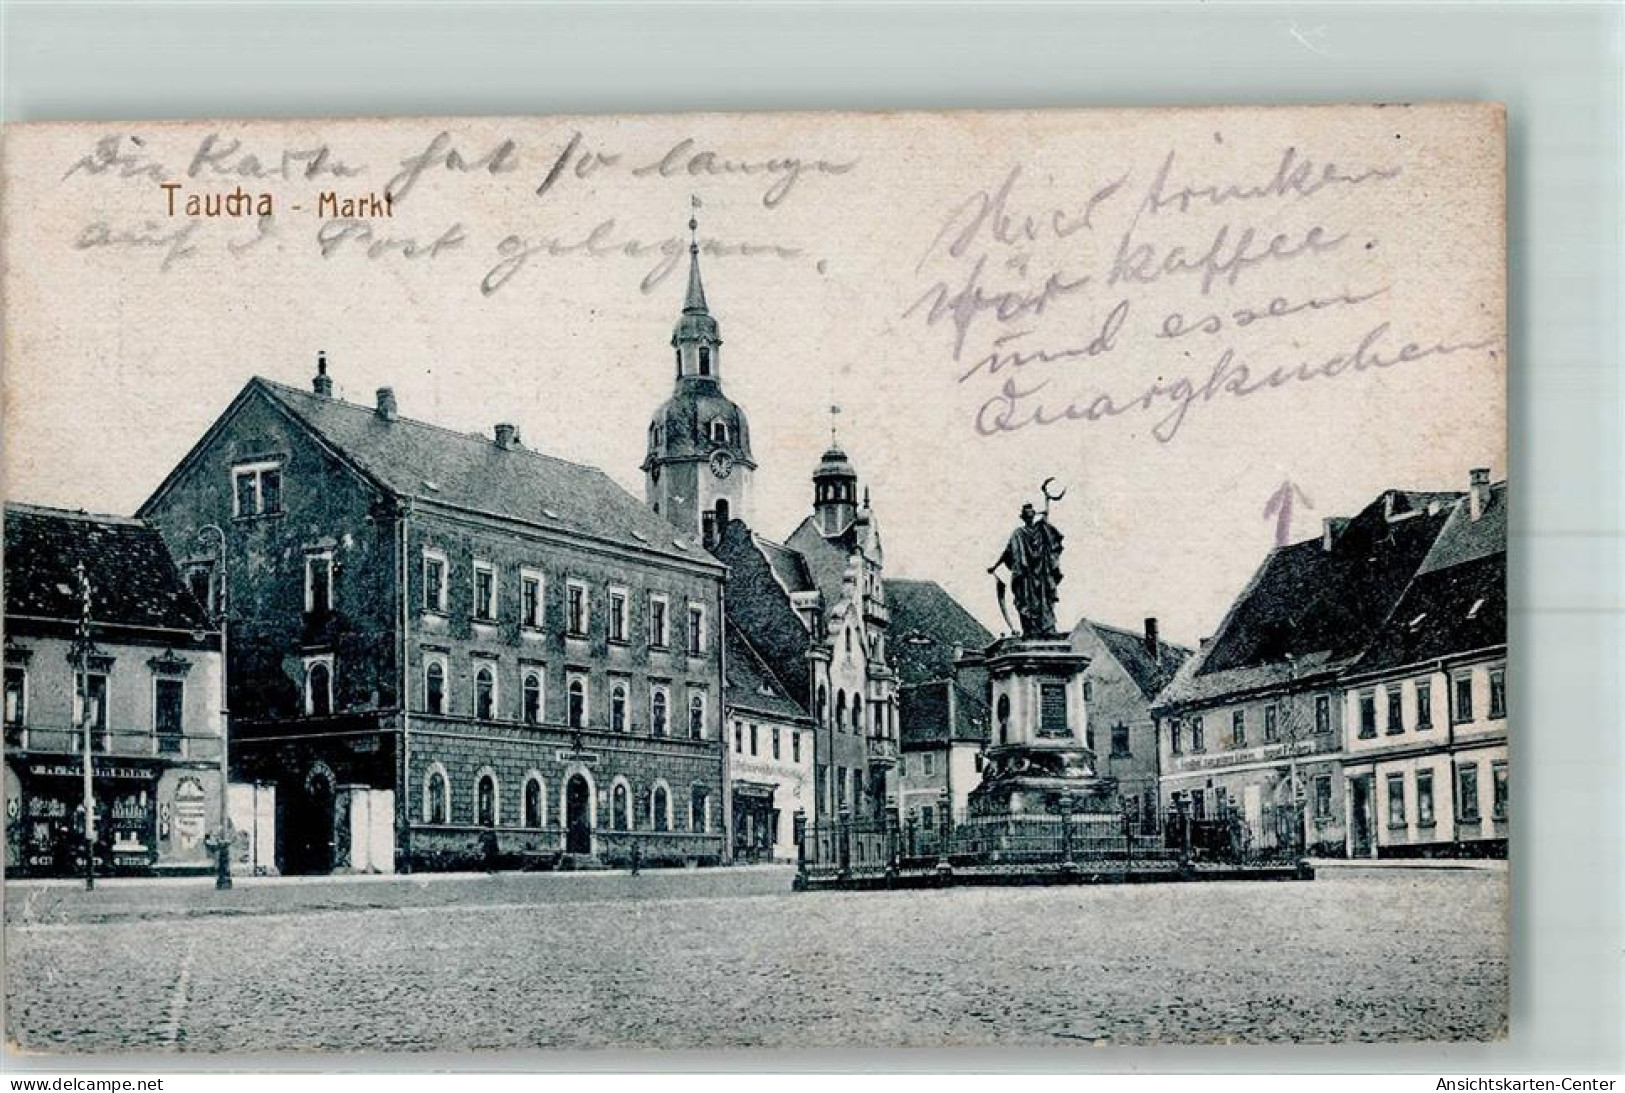 Die Karte hat so lange
Taucha - Markt
auf d. Post gelegen.
Hier trinken
wir kaffee.
und essen
Quargkuchen.
delcampe.net
Ansichtskarten-Center